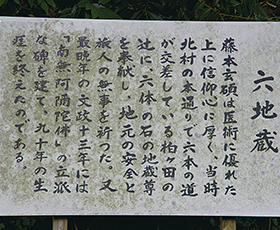 六地蔵
藤本玄碩は医術に優れた
上に信仰心に厚く、当時
北村の本通りで六本の道
が交差している柏ヶ田の
辻に、六体の石の地蔵尊
を奉献し、地元の安全と
旅人の無事を祈った。又
最晩年の文政十三年には
「南無阿弥陀佛」の立派
な碑を建て、九十年の生
涯を終えたのである。